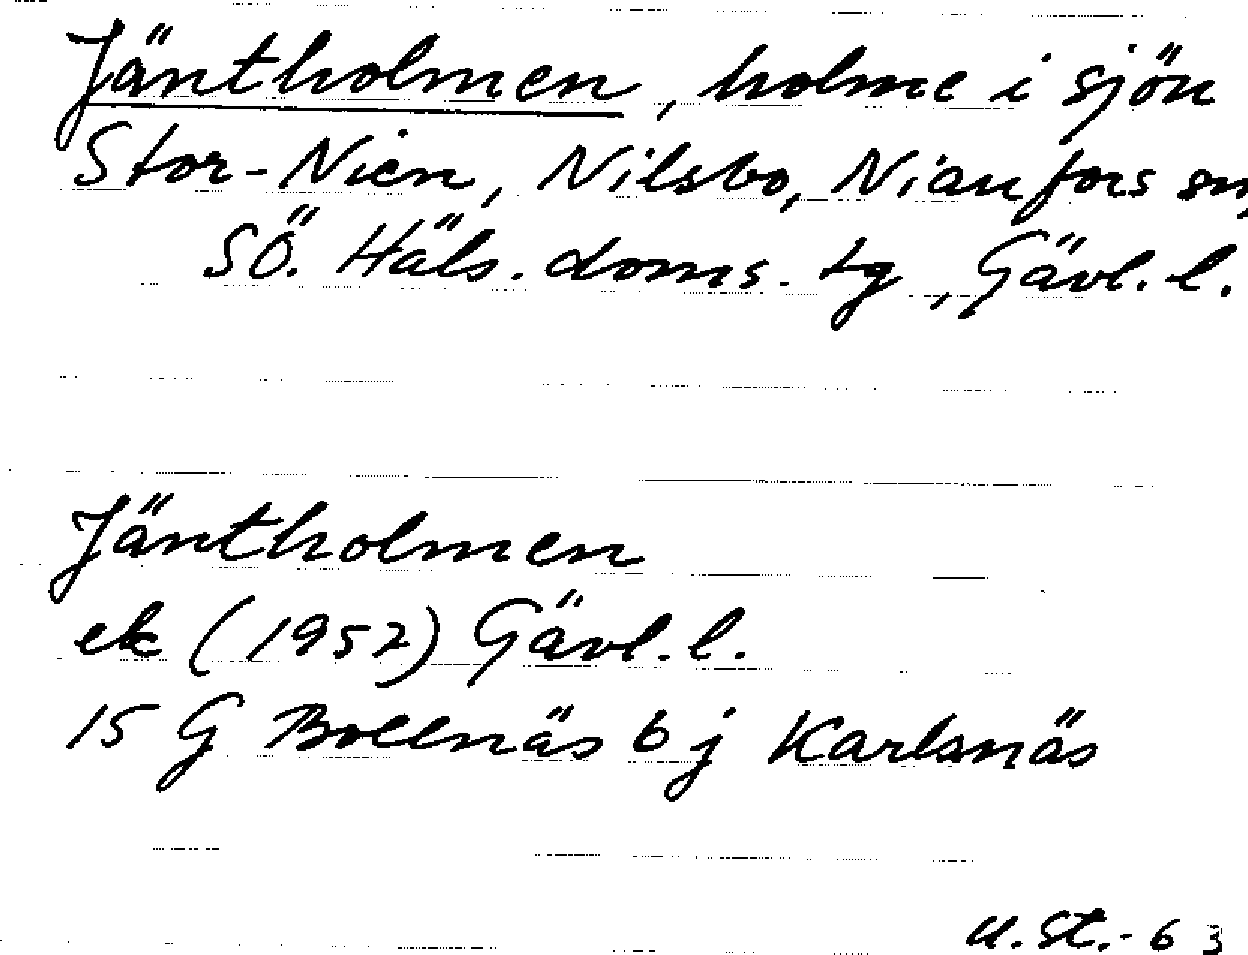 Jäntholmen, holme i sjön
Stor-Nien, Nilsbo, Nianfors sn,
SÖ. Häls. doms. tg, Gävl. l.
Jäntholmen
ek (1952) Gävl. l.
15 G Bollnäs 6 j Karlsnäs
U. St. - 63